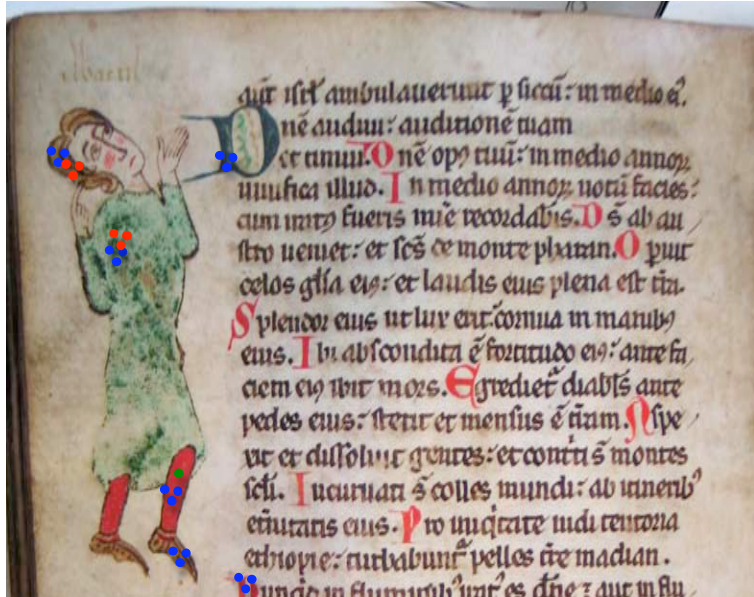 Abacuc
aut isrł ambulaverunt p̱ siccū: in medio eͥ.
Dnē audiui: auditionē tuam
et timui. Dnē opꝰ tuū: in medio annoꝝ
uiuifica illud. In medio annoꝝ notū facies:
cum iratꝰ fueris mīe recordabis. Ds̄ ab au
stro ueniet: et scs̄ de monte pharan. Operuit
celos glīa eiꝰ: et laudis eius plena est t̄ra.
Splendor eius ut lux erit: cornua in manibꝰ
eius. Ibi abscondita ē fortitudo eiꝰ: ante fa
ciem eiꝰ ibit mors. Egrediet᷑ diabłs ante
pedes eius: stetit et mensus ē t̄ram. Aspe
xit et dissoluit gentes: et contͥti s̄ montes
scłi. Incuruati s̄ colles mundi: ab itineribꝰ
et̄nitatis eius. Pro iniqͥtate uidi tentoria
ethiopie: turbabunt᷑ pelles t̄re madian.
Nunqͥd in fluminibꝰ irat᷒ es dn̄e ⁊ aut in flu